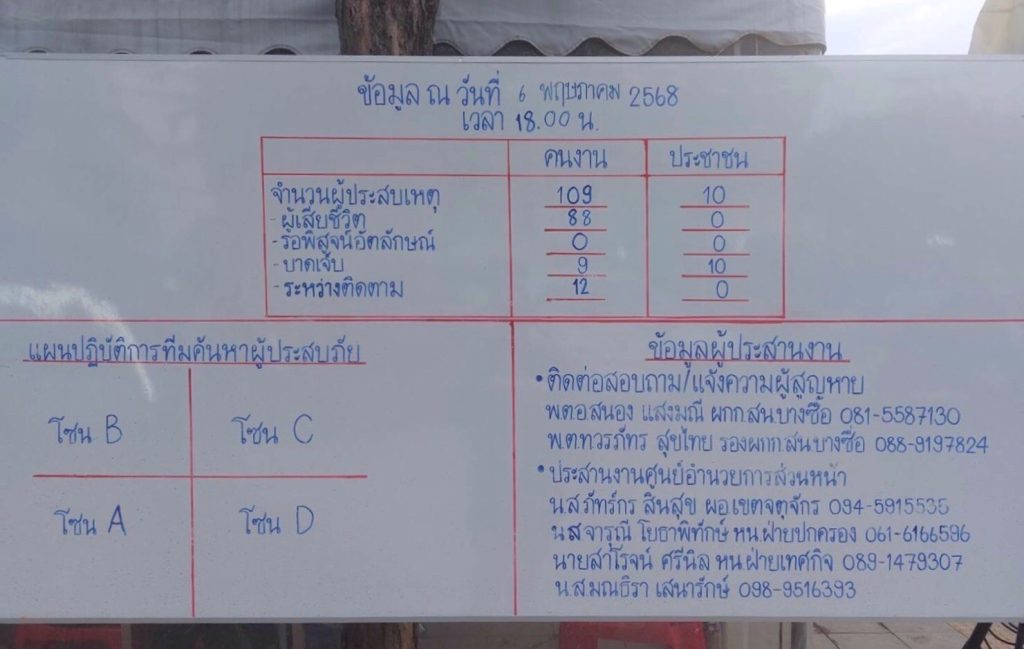 ข้อมูล ณ วันที่ 6 พฤษภาคม 2568
เวลา 18.00 น.
คนงาน ประชาชน
จำนวนผู้ประสบเหตุ 109 10
- ผู้เสียชีวิต 88 0
- รอพิสูจน์อัตลักษณ์ 0 0
- บาดเจ็บ 9 10
- ระหว่างติดตาม 12 0
แผนปฏิบัติการทีมค้นหาผู้ประสบภัย
โซน B โซน C
โซน A โซน D
ข้อมูลผู้ประสานงาน
• ติดต่อสอบถาม/แจ้งความผู้สูญหาย
พ.ต.อ.สนอง แสงมณี ผกก.สน.บางซื่อ 081-5587130
พ.ต.ท.วรภัทร สุขไทย รองผกก.สน.บางซื่อ 088-9197824
• ประสานงานศูนย์อำนวยการส่วนหน้า
น.ส.ภัทร์กร สินสุข ผอ.เขตจตุจักร 094-5915535
น.ส.จารุณี โยธาพิทักษ์ หน.ฝ่ายปกครอง 061-6166596
นายสาโรจน์ ศรีนิล หน.ฝ่ายเทศกิจ 089-1479307
น.ส.มณธิรา เสนารักษ์ 098-9516393